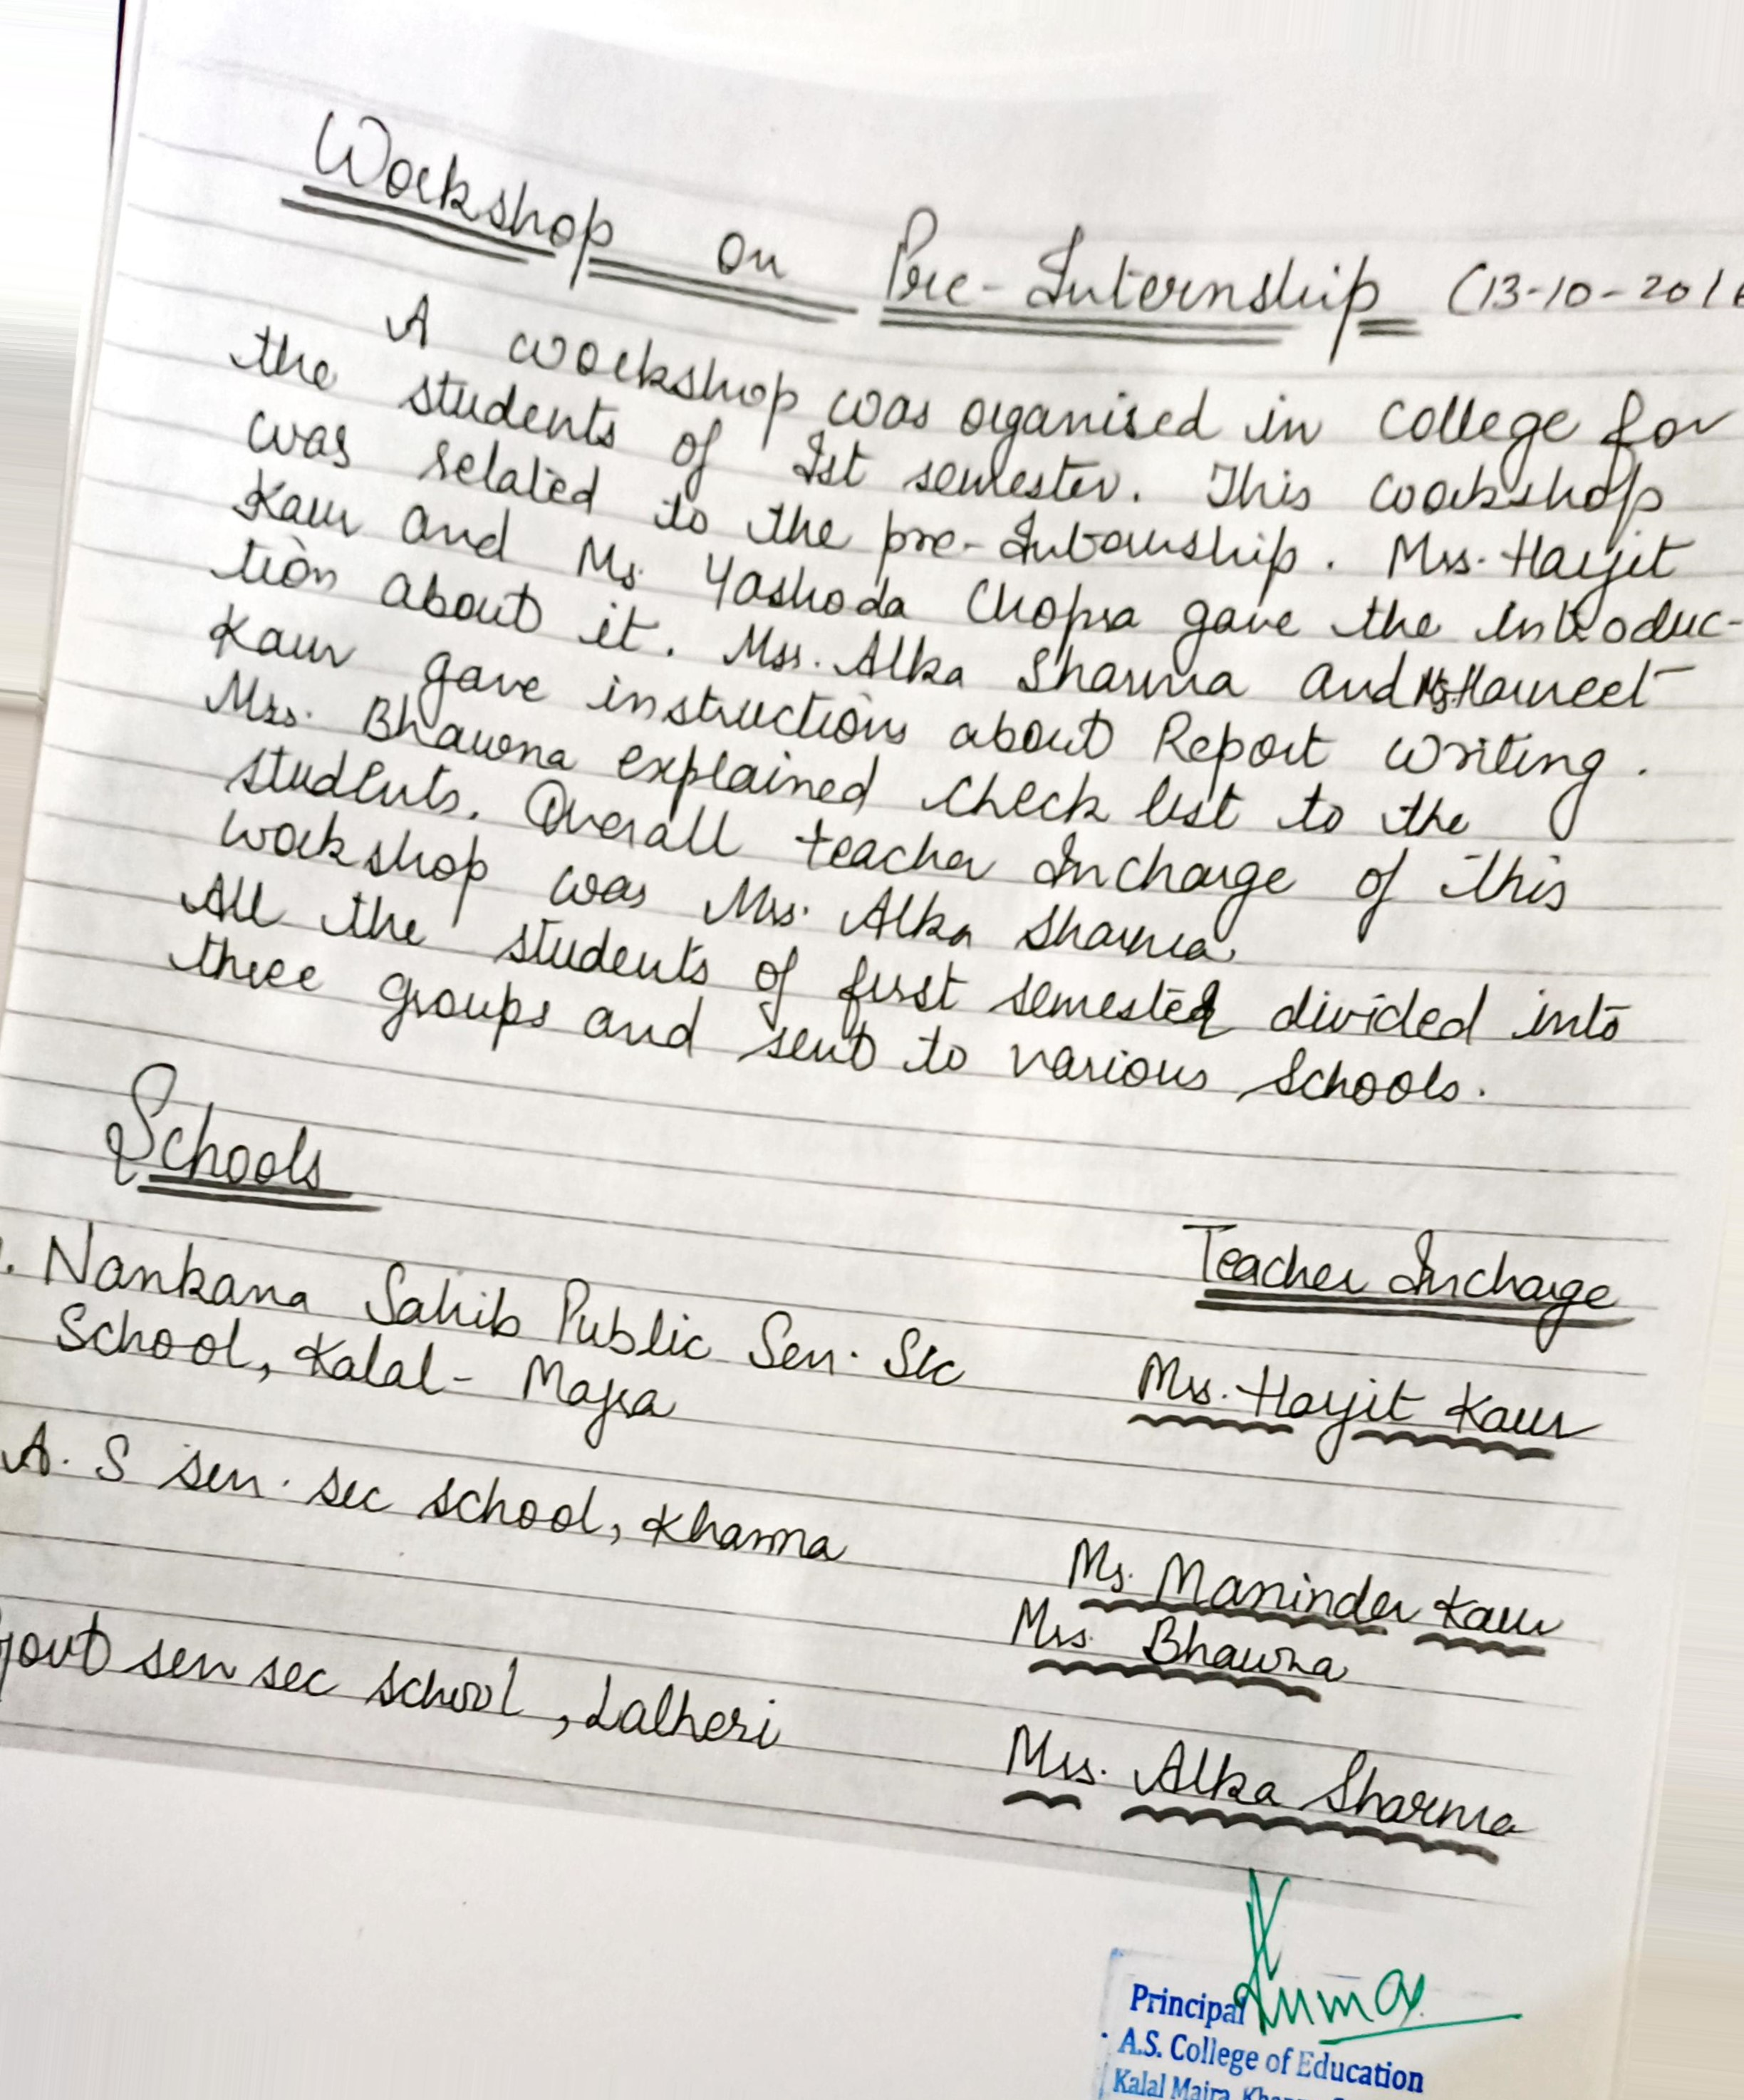 Workshop on Pre-Internship (13-10-201
A workshop was organised in College for
the students of Ist semester. This workshop
was related to the pre-Internship. Mrs. Harjit
Kaur and Ms. Yashoda Chopra gave the introduc-
tion about it. Mrs. Alka Sharma and Ms Harneet
Kaur gave instructions about Report writing.
Mrs. Bhawna explained check list to the
students. Overall teacher Incharge of this
workshop was Mrs. Alka Sharma.
All the students of first semester divided into
three groups and sent to various Schools.
Schools
Teacher Incharge
. Nankana Sahib Public Sen. Sec
School, Kalal-Majra
Mrs. Harjit Kaur
A. S sen. sec school, Khanna
Ms. Maninder Kaur
Mrs. Bhawna
Govt sen sec school, Lalheri
Mrs. Alka Sharma
Kumar
Principal
A.S. College of Education
Kalal Majra,